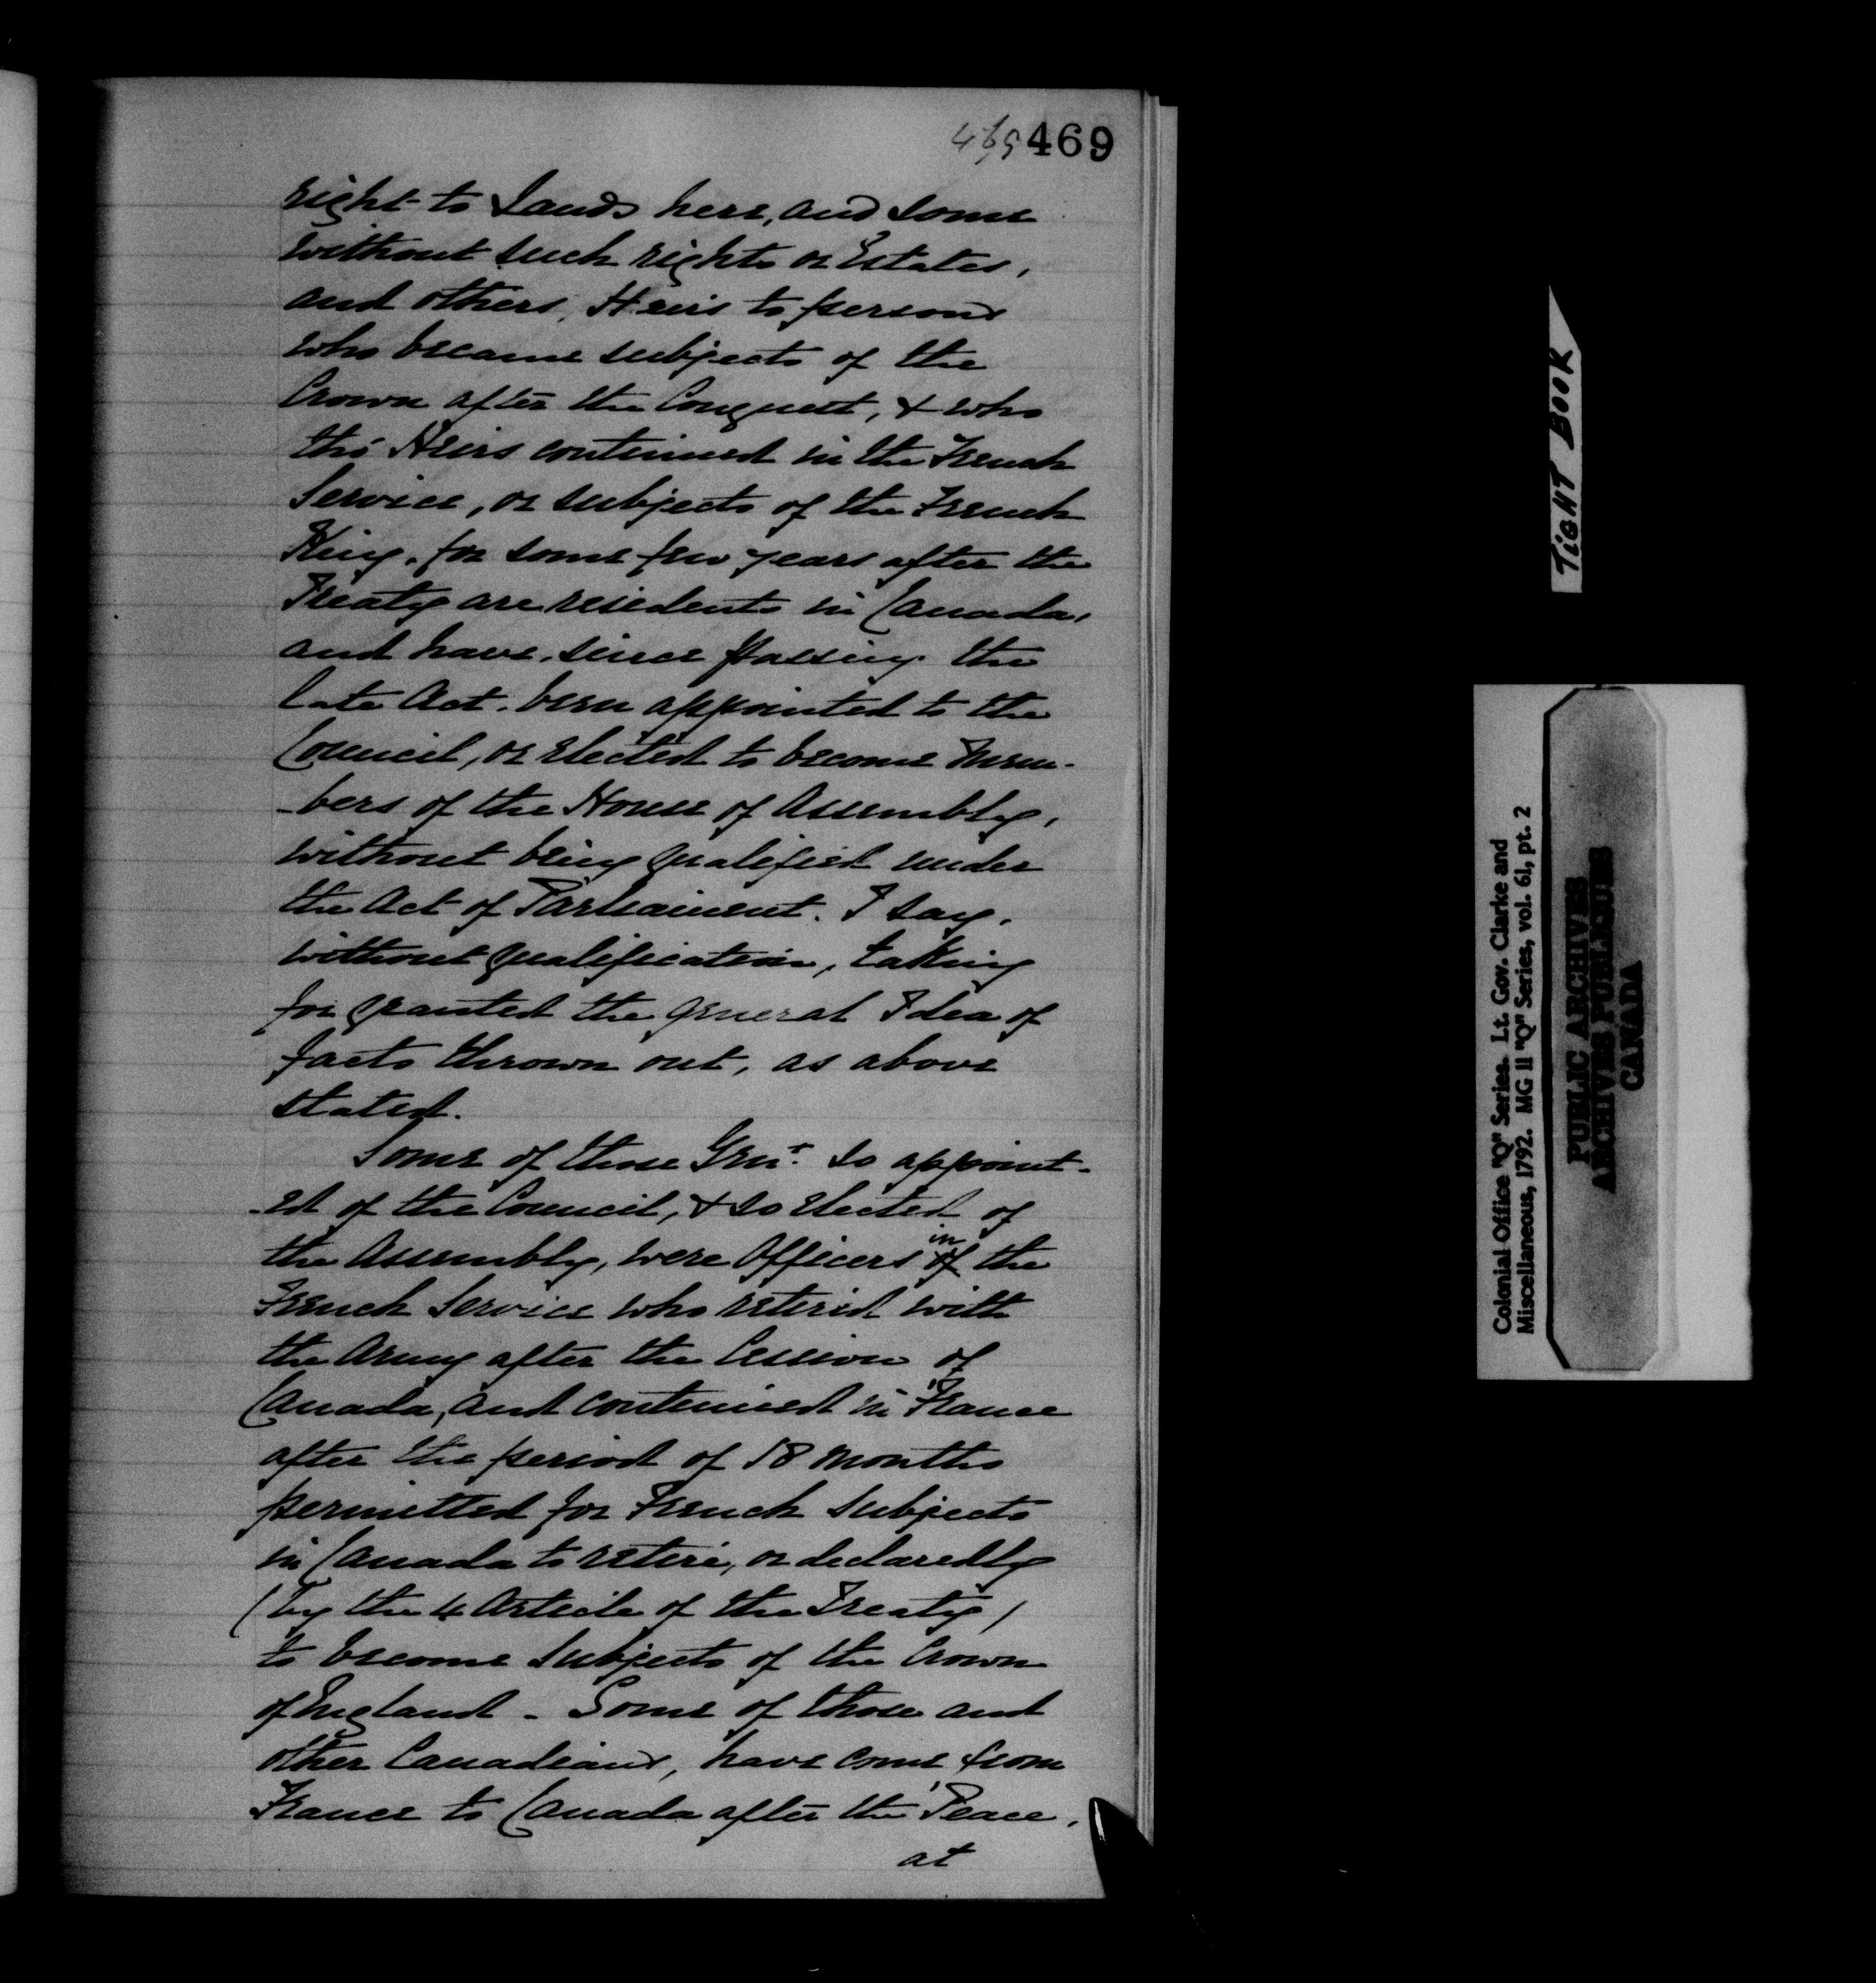 469 469
right to Lands here, and some
without such rights or Estates,
and others, Heirs to persons
who became subjects of the
Crown after the Conquest, & who
tho' Heirs continued in the French
Service, or subjects of the French
King, for some few years after the
Treaty are residents in Canada,
and have, since passing the
late Act, been appointed to the
Council, or elected to become Mem-
-bers of the House of Assembly,
without being qualified under
the Act of Parliament. I say,
without qualification, taking
for granted the general Idea of
facts thrown out, as above
stated.
Some of those Gent. so appoint-
-ed of the Council, & so elected of
the Assembly, were Officers of in the
French Service who retired with
the Army after the Cession of
Canada, and continued in France
after the period of 18 months
permitted for French subjects
in Canada to retire, or declaredly
(by the 4 Article of the Treaty)
to become subjects of the Crown
of England - Some of those and
other Canadians, have come from
France to Canada after the Peace,
at
TIGHT BOOK
Colonial Office "Q" Series. Lt. Gov. Clarke and
Miscellaneous, 1792. MG 11 "Q" Series, vol. 61, pt. 2
PUBLIC ARCHIVES
ARCHIVES PUBLIQUES
CANADA